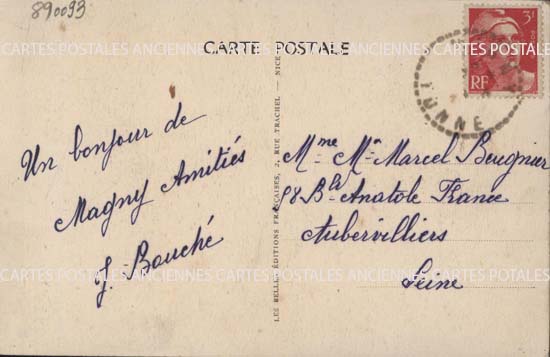 890093
CARTE POSTALE
3F
RF
YONNE
Un bonjour de
Magny Amitiés
J. Bouché
LES BELLES ÉDITIONS FRANÇAISES, 2, RUE TRACHEL — NICE
Mme Mr Marcel Beugnier
58 Bld Anatole France
Aubervilliers
Seine
CARTES POSTALES ANCIENNES CARTES POSTALES ANCIENNES
CARTES POSTALES ANCIENNES CARTES POSTALES